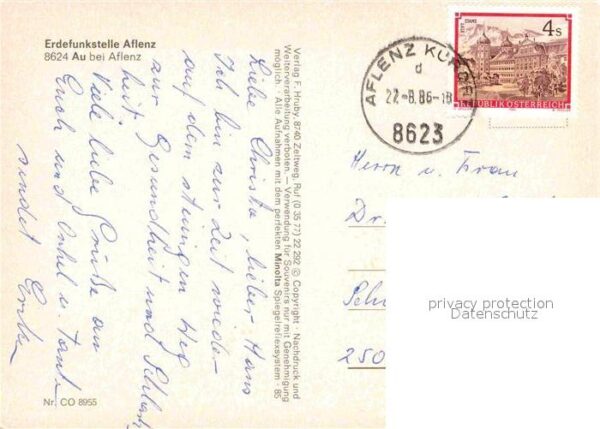 Erdefunkstelle Aflenz
8624 Au bei Aflenz
Liebe Christa, lieber Hans
Ich bin zur Zeit wieder
auf dem steinigen Weg
zur Gesundheit und Schlank-
heit
Viele liebe Grüße an
Euch und Onkel u. Tante
sendet Erika
Nr. CO 8955
Verlag F. Hruby, 8740 Zeltweg, Ruf (0 35 77) 22 292 © Copyright · Nachdruck und
Weiterverarbeitung verboten. — Verwendung für Souvenirs nur mit Genehmigung
möglich · Alle Aufnahmen mit dem perfekten Minolta Spiegelreflexsystem · 85
AFLENZ KURORT
d
22.-8.86-18
8623
4s
STIFT STAMS
REPUBLIK ÖSTERREICH
Herrn u. Frau
Dr.
250
privacy protection
Datenschutz